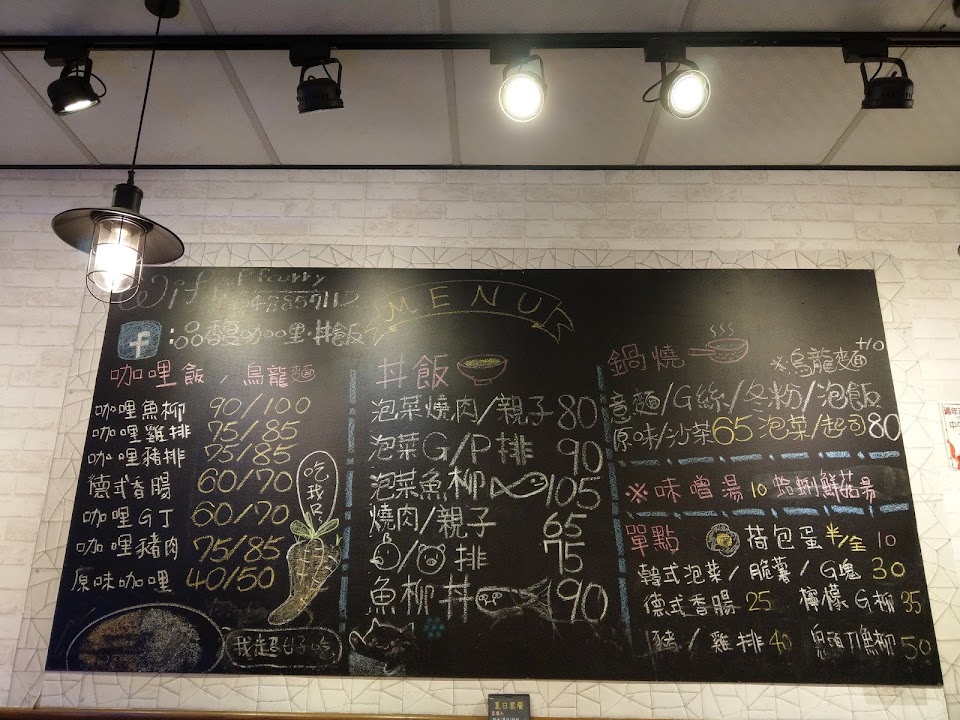 Wifi
curry
48857112
MENU
f
品香咖哩·丼飯
咖哩飯/烏龍麵
咖哩魚柳 90/100
咖哩雞排 75/85
咖哩豬排 75/85
德式香腸 60/70
咖哩G丁 60/70
咖哩豬肉 75/85
原味咖哩 40/50
吃我
我超好吃
丼飯
泡菜燒肉/親子 80
泡菜G/P排 90
泡菜魚柳 105
燒肉/親子 65
/ 排 75
魚柳丼 90
鍋燒
※烏龍麵+10
意麵/G絲/冬粉/泡飯
原味/沙茶65 泡菜/起司80
※味噌湯10 蛤蜊鮮菇湯
單點 荷包蛋半/全 10
韓式泡菜/脆薯/G塊 30
德式香腸 25 檸檬G柳 35
豬/雞排 40 魚柳 50
夏日套餐